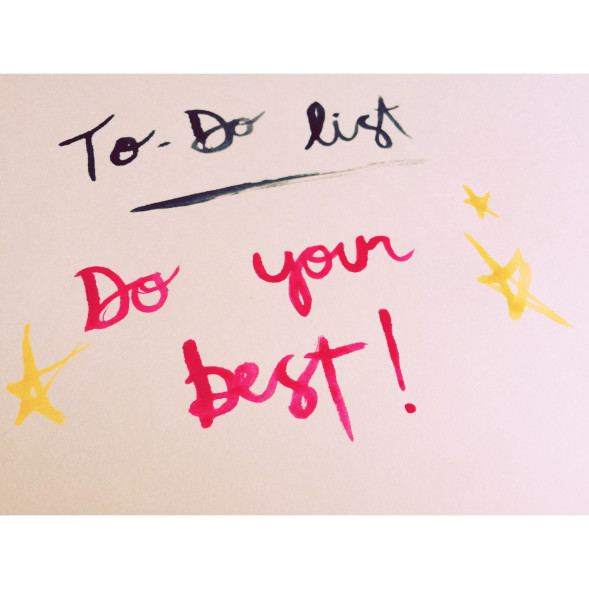 To-Do list
Do your
best!